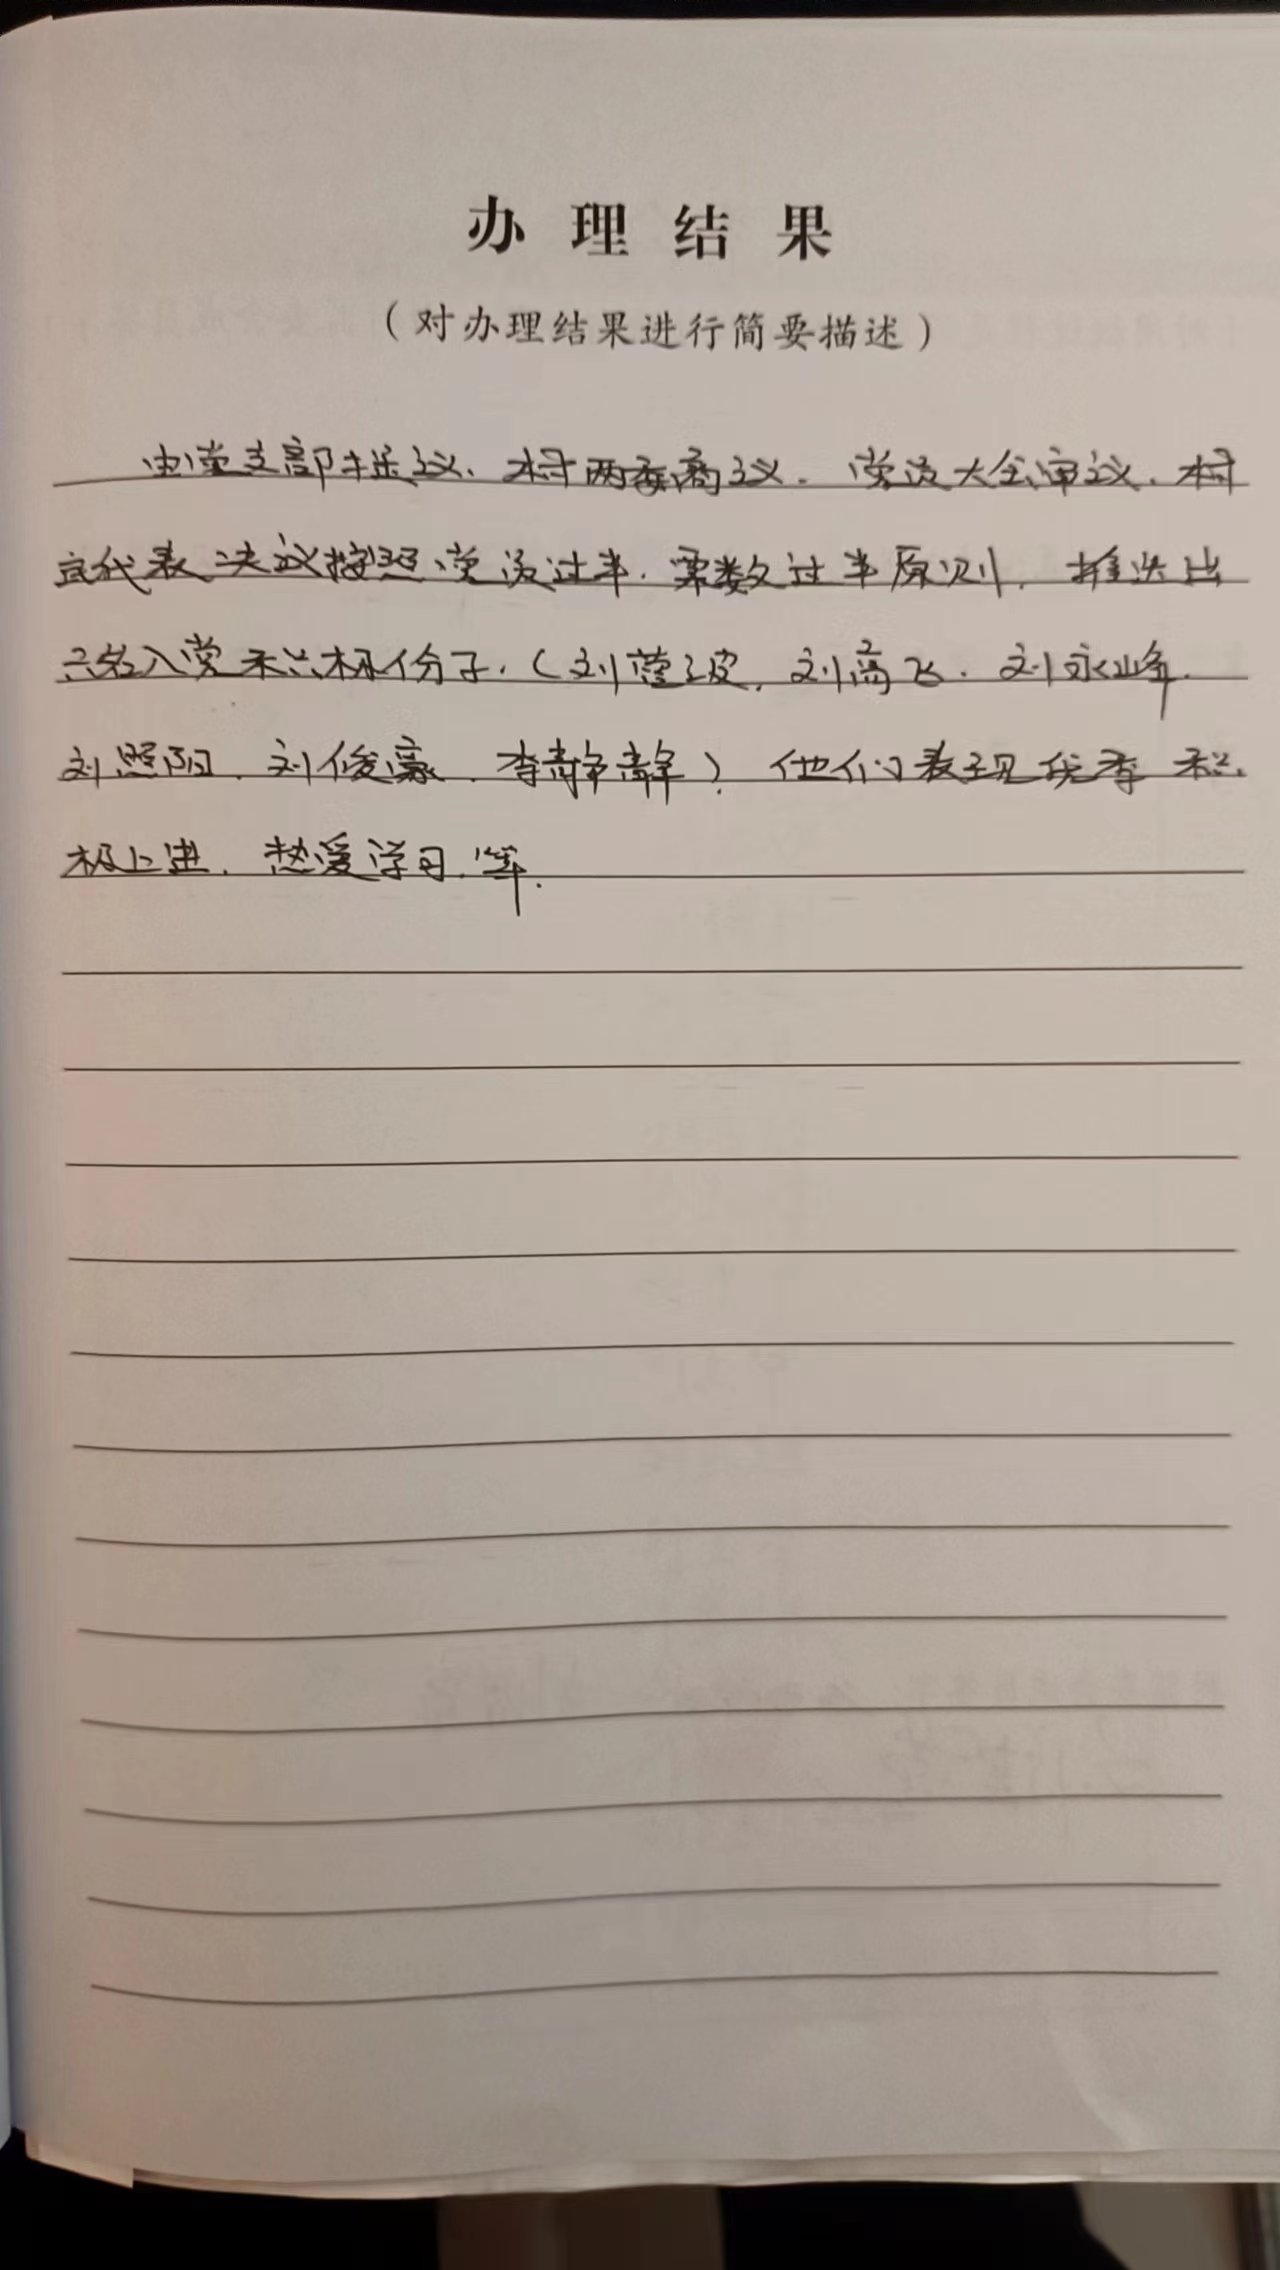 办理结果
（对办理结果进行简要描述）
由党支部提议、村两委商议、党员大会审议、村
民代表决议按照党员过半、票数过半原则，推选出
六名入党积极份子，（刘莹波、刘高飞、刘永峰、
刘照阳、刘俊豪、李静静），他们表现优秀 积
极上进、热爱学习、等.